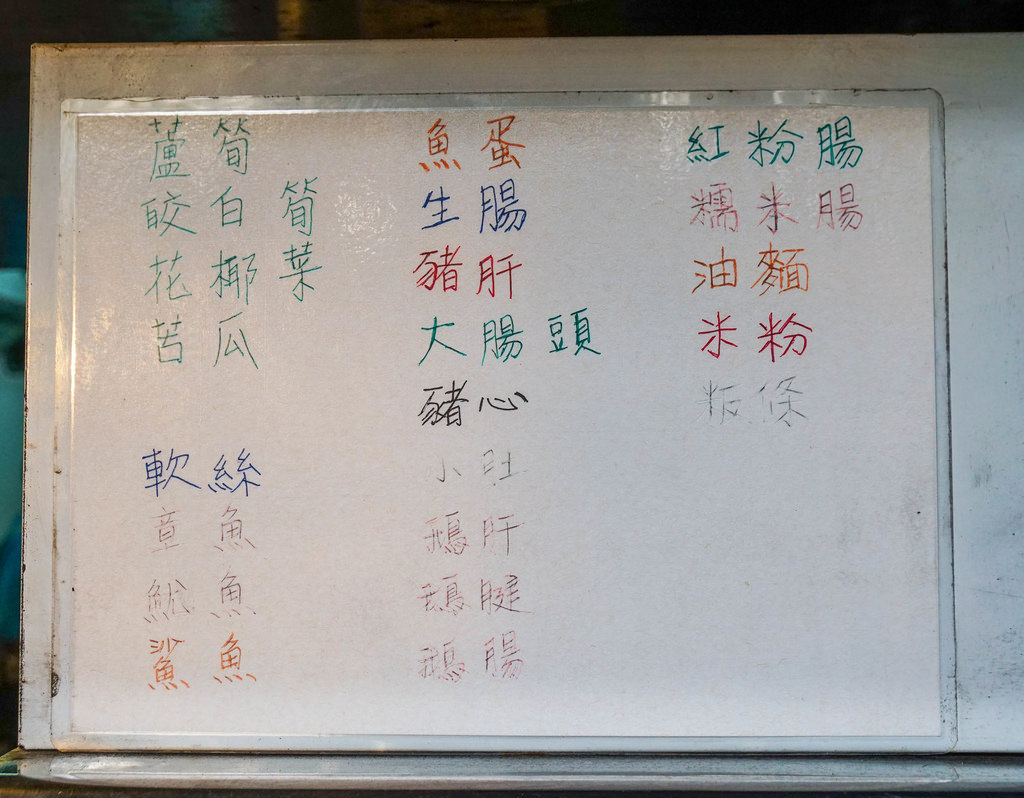 蘆筍
皎白筍
花椰菜
苦瓜
軟絲
章魚
魷魚
鯊魚
魚蛋
生腸
豬肝
大腸頭
豬心
小肚
鵝肝
鵝腱
鵝腸
紅粉腸
糯米腸
油麵
米粉
粄條